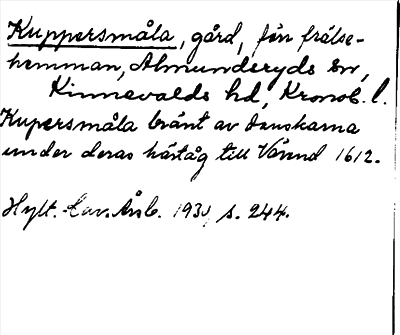 Kuppersmåla, gård, f.d. frälse-
hemman, Almunderyds sn,
Kinnevalds hd, Kronob. l.
Kupersmåla bränt av danskarna
under deras härtåg till Värend 1612.
Hylt. Cav. Årsb. s. 244.